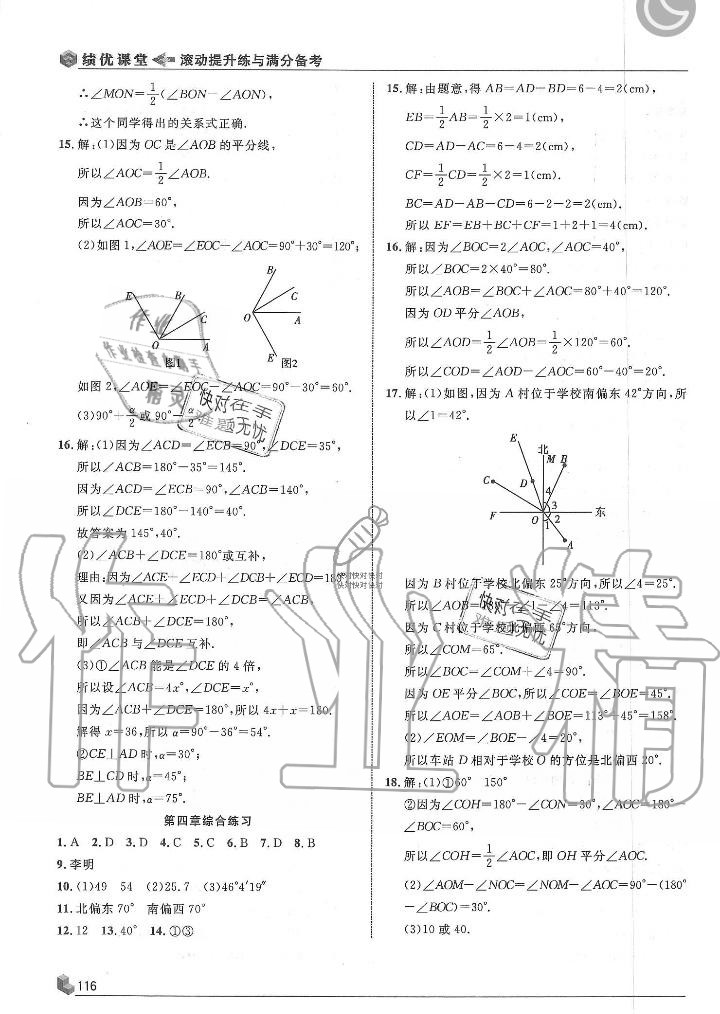 绩优课堂 滚动提升练与满分备考
∴∠MON=1/2(∠BON-∠AON),
∴这个同学得出的关系式正确.
15.解:(1)因为OC是∠AOB的平分线,
所以∠AOC=1/2∠AOB.
因为∠AOB=60°,
所以∠AOC=30°.
(2)如图1,∠AOE=∠EOC+∠AOC=90°+30°=120°;
E B C O A
图1
B C O A E
图2
如图2,∠AOE=∠EOC-∠AOC=90°-30°=60°.
(3)90°+α/2或90°-α/2
16.解:(1)因为∠ACD=∠ECB=90°,∠DCE=35°,
所以∠ACB=180°-35°=145°.
因为∠ACD=∠ECB=90°,∠ACB=140°,
所以∠DCE=180°-140°=40°.
故答案为145°,40°.
(2)∠ACB+∠DCE=180°或互补,
理由:因为∠ACE+∠ECD+∠DCB+∠ECD=180°
又因为∠ACE+∠ECD+∠DCB=∠ACB,
所以∠ACB+∠DCE=180°,
即∠ACB与∠DCE互补.
(3)①∠ACB能是∠DCE的4倍,
所以设∠ACB=4x°,∠DCE=x°,
因为∠ACB+∠DCE=180°,所以4x+x=180.
解得x=36,所以α=90°-36°=54°.
②CE⊥AD时,α=30°;
BE⊥CD时,α=45°;
BE⊥AD时,α=75°.
第四章综合练习
1.A 2.D 3.D 4.C 5.C 6.B 7.D 8.B
9.李明
10.(1)49 54 (2)25.7 (3)46°4′19″
11.北偏东70° 南偏西70°
12.12 13.40° 14.①③
15.解:由题意,得AB=AD-BD=6-4=2(cm),
EB=1/2AB=1/2×2=1(cm),
CD=AD-AC=6-4=2(cm),
CF=1/2CD=1/2×2=1(cm).
BC=AD-AB-CD=6-2-2=2(cm).
所以EF=EB+BC+CF=1+2+1=4(cm).
16.解:因为∠BOC=2∠AOC,∠AOC=40°,
所以∠BOC=2×40°=80°.
所以∠AOB=∠BOC+∠AOC=80°+40°=120°.
因为OD平分∠AOB,
所以∠AOD=1/2∠AOB=1/2×120°=60°.
所以∠COD=∠AOD-∠AOC=60°-40°=20°.
17.解:(1)如图,因为A村位于学校南偏东42°方向,所
以∠1=42°.
E 北 M B C D 4 3 F O 2 1 东 A
因为B村位于学校北偏东25°方向,所以∠4=25°.
所以∠AOB=180°-∠1-∠4=113°.
因为C村位于学校北偏西65°方向,
所以∠COM=65°.
所以∠BOC=∠COM+∠4=90°.
因为OE平分∠BOC,所以∠COE=∠BOE=45°.
所以∠AOE=∠AOB+∠BOE=113°+45°=158°.
(2)∠EOM=∠BOE-∠4=20°,
所以车站D相对于学校O的方位是北偏西20°.
18.解:(1)①60° 150°
②因为∠COH=180°-∠CON=30°,∠AOC=180°-
∠BOC=60°,
所以∠COH=1/2∠AOC,即OH平分∠AOC.
(2)∠AOM-∠NOC=∠NOM-∠AOC=90°-(180°
-∠BOC)=30°.
(3)10或40.
116
作业精
快对在手
难题无忧
快对在手
作业检查小帮手
快对快对快对
快对快对快对